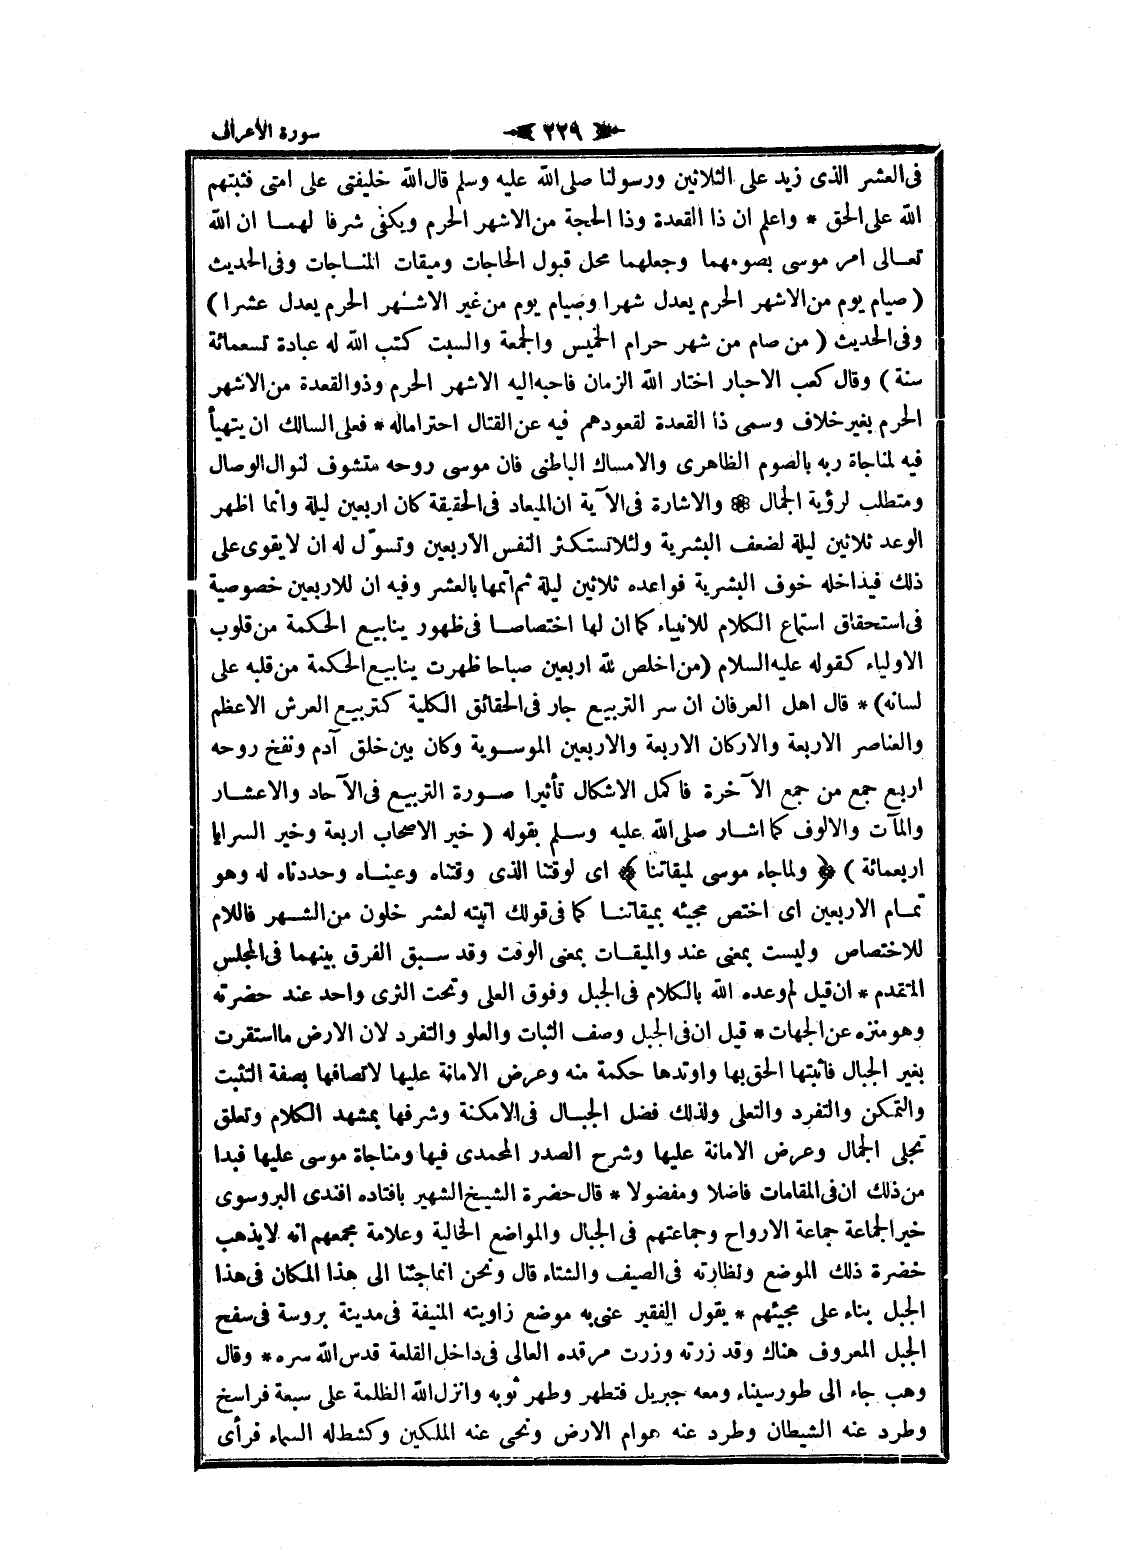 سورة الأعراف
٢٢٩
فى العشر الذى زيد على الثلاثين ورسولنا صلى الله عليه وسلم قال الله خليفتى على امتى فثبتهم
الله على الحق * واعلم ان ذا القعدة وذا الحجة من الاشهر الحرم ويكفى شرفا لهما ان الله
تعالى امر موسى بصومهما وجعلهما محل قبول الحاجات وميقات المناجات وفى الحديث
( صيام يوم من الاشهر الحرم يعدل شهرا وصيام يوم من غير الاشهر الحرم يعدل عشرا )
وفى الحديث ( من صام من شهر حرام الخميس والجمعة والسبت كتب الله له عبادة تسعمائة
سنة ) وقال كعب الاحبار اختار الله الزمان فاحبه اليه الاشهر الحرم وذو القعدة من الاشهر
الحرم بغير خلاف وسمى ذا القعدة لقعودهم فيه عن القتال احتراماله * فعلى السالك ان يتهيأ
فيه لمناجاة ربه بالصوم الظاهرى والامساك الباطنى فان موسى روحه متشوف لنوال الوصال
ومتطلب لرؤية الجمال ❁ والاشارة فى الآية ان الميعاد فى الحقيقة كان اربعين ليلة وانما اظهر
الوعد ثلاثين ليلة لضعف البشرية ولئلا تستكثر النفس الاربعين وتسوّل له ان لا يقوى على
ذلك فيداخله خوف البشرية فواعده ثلاثين ليلة ثم اتمها بالعشر وفيه ان للاربعين خصوصية
فى استحقاق استماع الكلام للانبياء كما ان لها اختصاصا فى ظهور ينابيع الحكمة من قلوب
الاولياء كقوله عليه السلام (من اخلص لله اربعين صباحا ظهرت ينابيع الحكمة من قلبه على
لسانه) * قال اهل العرفان ان سر التربيع جار فى الحقائق الكلية كتربيع العرش الاعظم
والعناصر الاربعة والاركان الاربعة والاربعين الموسوية وكان بين خلق آدم ونفخ روحه
اربع جمع من جمع الآخرة فاكمل الاشكال تأثيرا صورة التربيع فى الآحاد والاعشار
والمآت والالوف كما اشار صلى الله عليه وسلم بقوله ( خير الاصحاب اربعة وخير السرايا
اربعمائة ) ﴿ ولما جاء موسى لميقاتنا ﴾ اى لوقتنا الذى وقتناه وعيناه وحددناه له وهو
تمام الاربعين اى اختص مجيئه بميقاتنا كما فى قولك اتيته لعشر خلون من الشهر فاللام
للاختصاص وليست بمعنى عند والميقات بمعنى الوقت وقد سبق الفرق بينهما فى المجلس
المتقدم * ان قيل لم وعده الله بالكلام فى الجبل وفوق العلى وتحت الثرى واحد عند حضرته
وهو منزه عن الجهات * قيل ان فى الجبل وصف الثبات والعلو والتفرد لان الارض ما استقرت
بغير الجبال فاثبتها الحق بها واوتدها حكمة منه وعرض الامانة عليها لاتصافها بصفة التثبت
والتمكن والتفرد والتعلى ولذلك فضل الجبال فى الامكنة وشرفها بمشهد الكلام وتعلق
تجلى الجمال وعرض الامانة عليها وشرح الصدر المحمدى فيها ومناجاة موسى عليها فبدا
من ذلك ان فى المقامات فاضلا ومفضولا * قال حضرة الشيخ الشهير بافتاده افندى البروسوى
خير الجماعة جماعة الارواح وجماعتهم فى الجبال والمواضع الخالية وعلامة مجمعهم انه لا يذهب
خضرة ذلك الموضع ونظارته فى الصيف والشتاء قال ونحن انما جئنا الى هذا المكان فى هذا
الجبل بناء على مجيئهم * يقول الفقير عنى به موضع زاويته المنيفة فى مدينة بروسة فى سفح
الجبل المعروف هناك وقد زرته وزرت مرقده العالى فى داخل القلعة قدس الله سره * وقال
وهب جاء الى طور سيناء ومعه جبريل فتطهر وطهر ثوبه وانزل الله الظلمة على سبعة فراسخ
وطرد عنه الشيطان وطرد عنه هوام الارض ونحى عنه الملكين وكشط له السماء فرأى